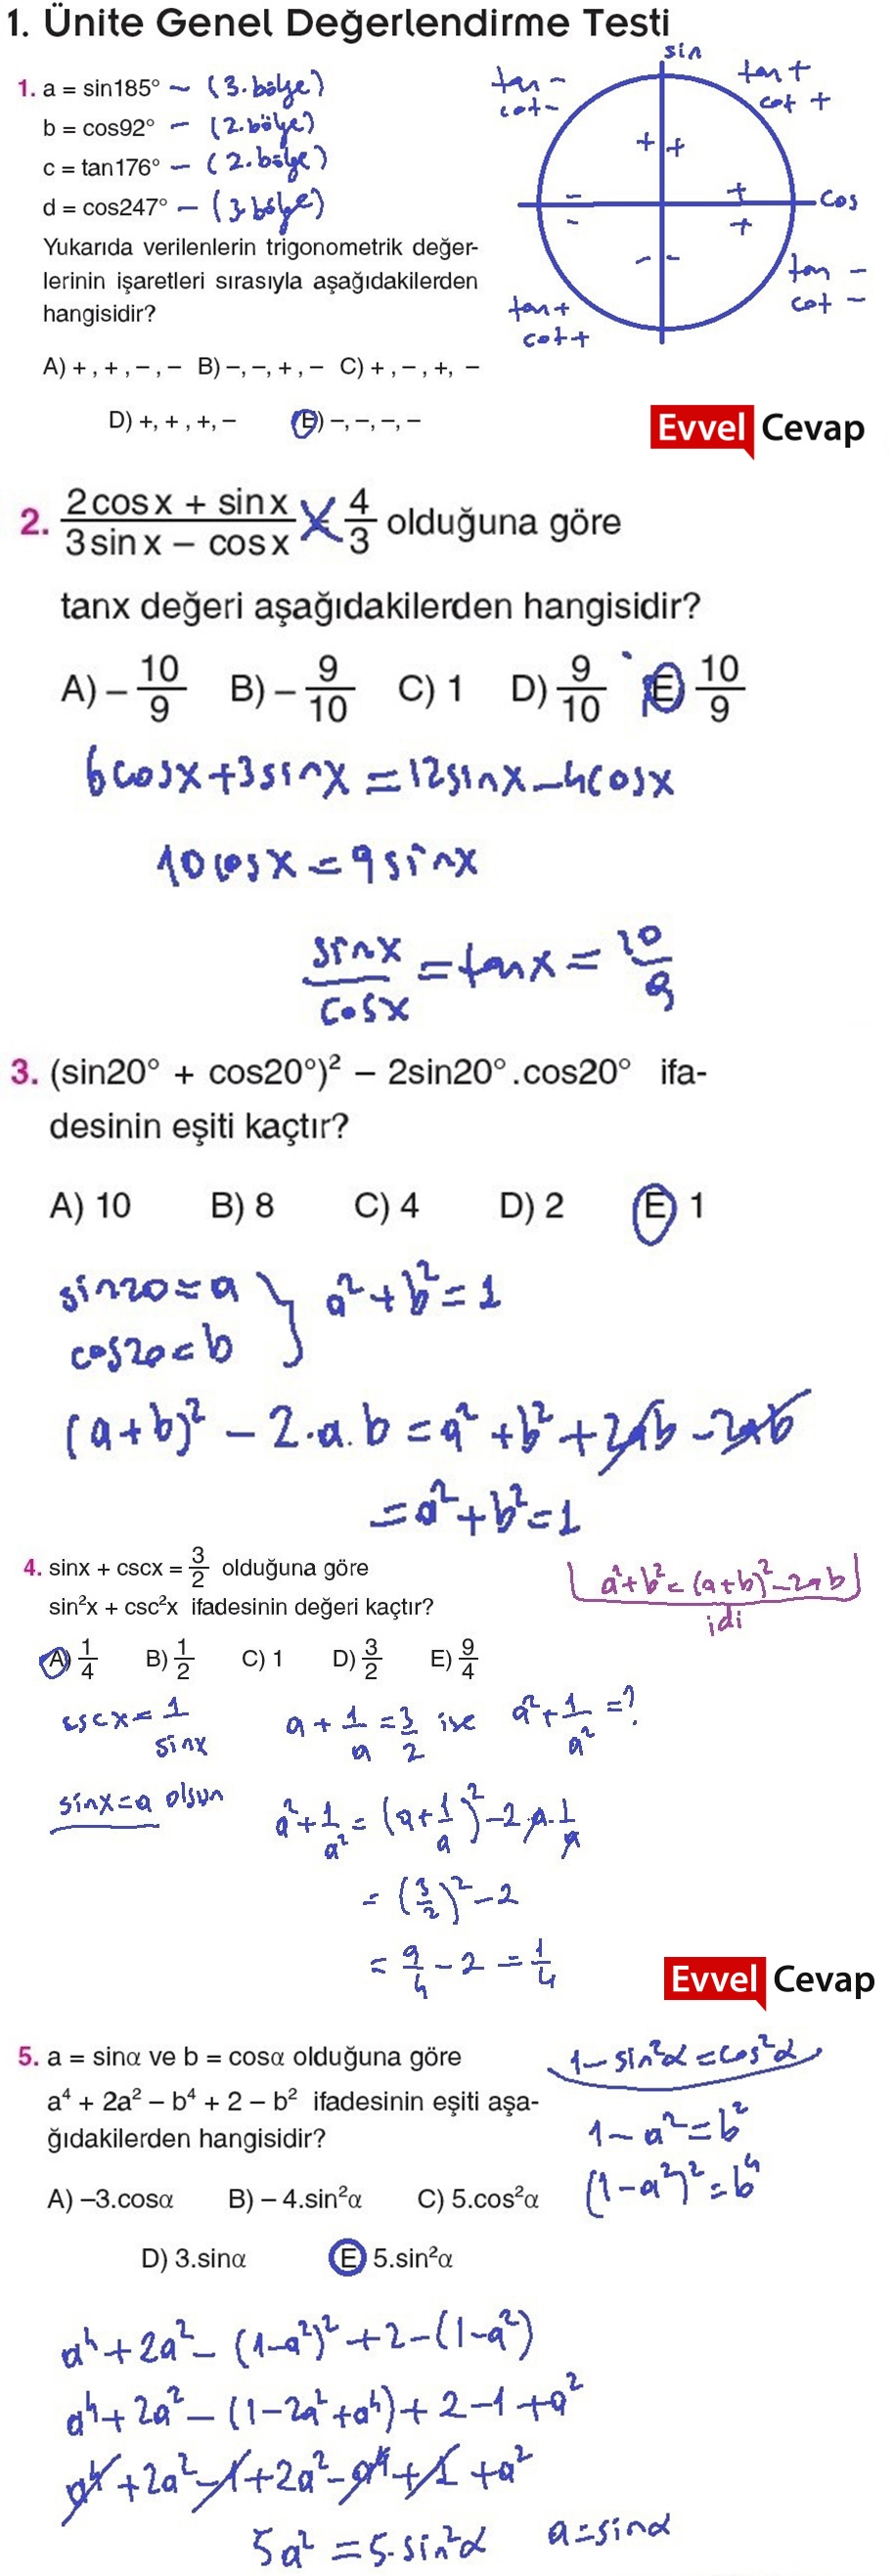 1. Ünite Genel Değerlendirme Testi
1. a = sin185° – (3.bölge)
b = cos92° – (2.bölge)
c = tan176° – (2.bölge)
d = cos247° – (3.bölge)
Yukarıda verilenlerin trigonometrik değer-
lerinin işaretleri sırasıyla aşağıdakilerden
hangisidir?
A) + , + , – , – B) –, –, + , – C) + , – , +, –
D) +, + , +, – E) –, –, –, –
sin
tan –
cot –
tan +
cot +
+ +
– +
– +
cos
– –
tan +
cot +
tan –
cot –
Evvel Cevap
2. (2cosx + sinx)/(3sinx – cosx) = 4/3 olduğuna göre
tanx değeri aşağıdakilerden hangisidir?
A) –10/9 B) –9/10 C) 1 D) 9/10 E) 10/9
6cosx+3sinx=12sinx–4cosx
10cosx=9sinx
sinx/cosx = tanx = 10/9
3. (sin20° + cos20°)² – 2sin20°.cos20° ifa-
desinin eşiti kaçtır?
A) 10 B) 8 C) 4 D) 2 E) 1
sin20=a
cos20=b } a²+b²=1
(a+b)² – 2.a.b = a²+b²+2ab–2ab
= a²+b²=1
4. sinx + cscx = 3/2 olduğuna göre
sin²x + csc²x ifadesinin değeri kaçtır?
a²+b²=(a+b)²–2ab
idi
A) 1/4 B) 1/2 C) 1 D) 3/2 E) 9/4
cscx = 1/sinx
a + 1/a = 3/2 ise a²+1/a² =?
sinx=a olsun
a²+1/a² = (a+1/a)²–2.a.1/a
= (3/2)²–2
= 9/4 – 2 = 1/4
Evvel Cevap
5. a = sinα ve b = cosα olduğuna göre
a⁴ + 2a² – b⁴ + 2 – b² ifadesinin eşiti aşa-
ğıdakilerden hangisidir?
1–sin²α=cos²α
1–a²=b²
(1–a²)²=b⁴
A) –3.cosα B) – 4.sin²α C) 5.cos²α
D) 3.sinα E) 5.sin²α
a⁴+2a²–(1–a²)²+2–(1–a²)
a⁴+2a²–(1–2a²+a⁴)+2–1+a²
a⁴+2a²–1+2a²–a⁴+1+a²
5a²=5.sin²α a=sinα